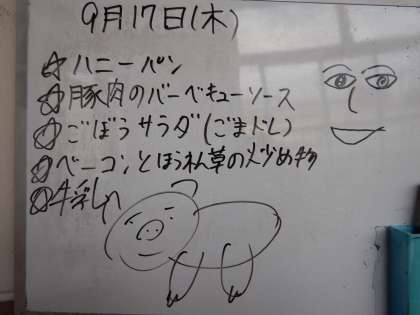 9月17日(木)
☆ハニーパン
☆豚肉のバーベキューソース
☆ごぼうサラダ(ごまドレ)
☆ベーコンとほうれん草の炒め物
☆牛乳